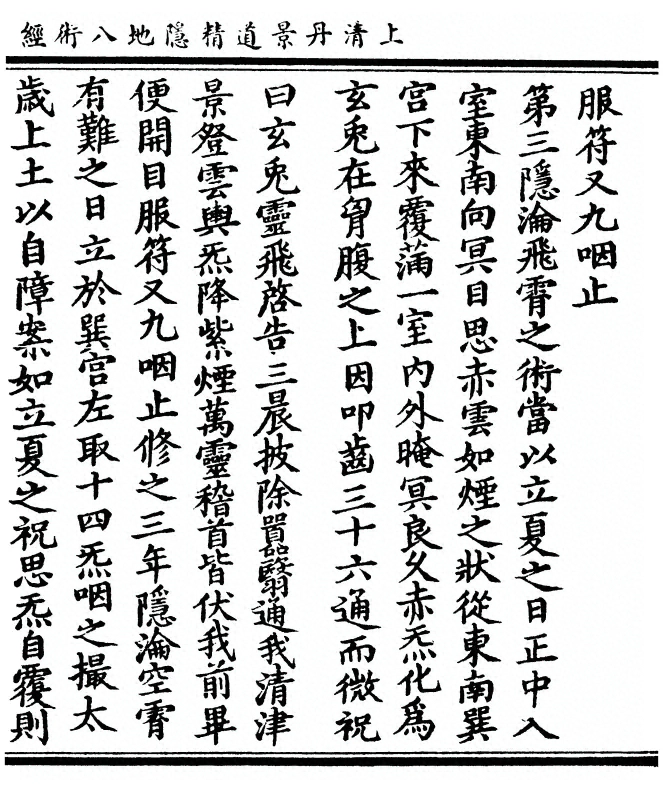 上清丹景道精隱地八術經
服符又九咽止
第三隱淪飛霄之術當以立夏之日正中入
室東南向冥目思赤雲如煙之狀從東南巽
宮下來覆滿一室內外晻冥良久赤炁化爲
玄兎在胷腹之上因叩齒三十六通而微祝
曰玄兎靈飛啓告三晨披除嚚翳通我清津
景登雲輿炁降紫煙萬靈稽首皆伏我前畢
便開目服符又九咽止修之三年隱淪空霄
有難之日立於巽宮左取十四炁咽之撮太
歲上土以自障案如立夏之祝思炁自覆則